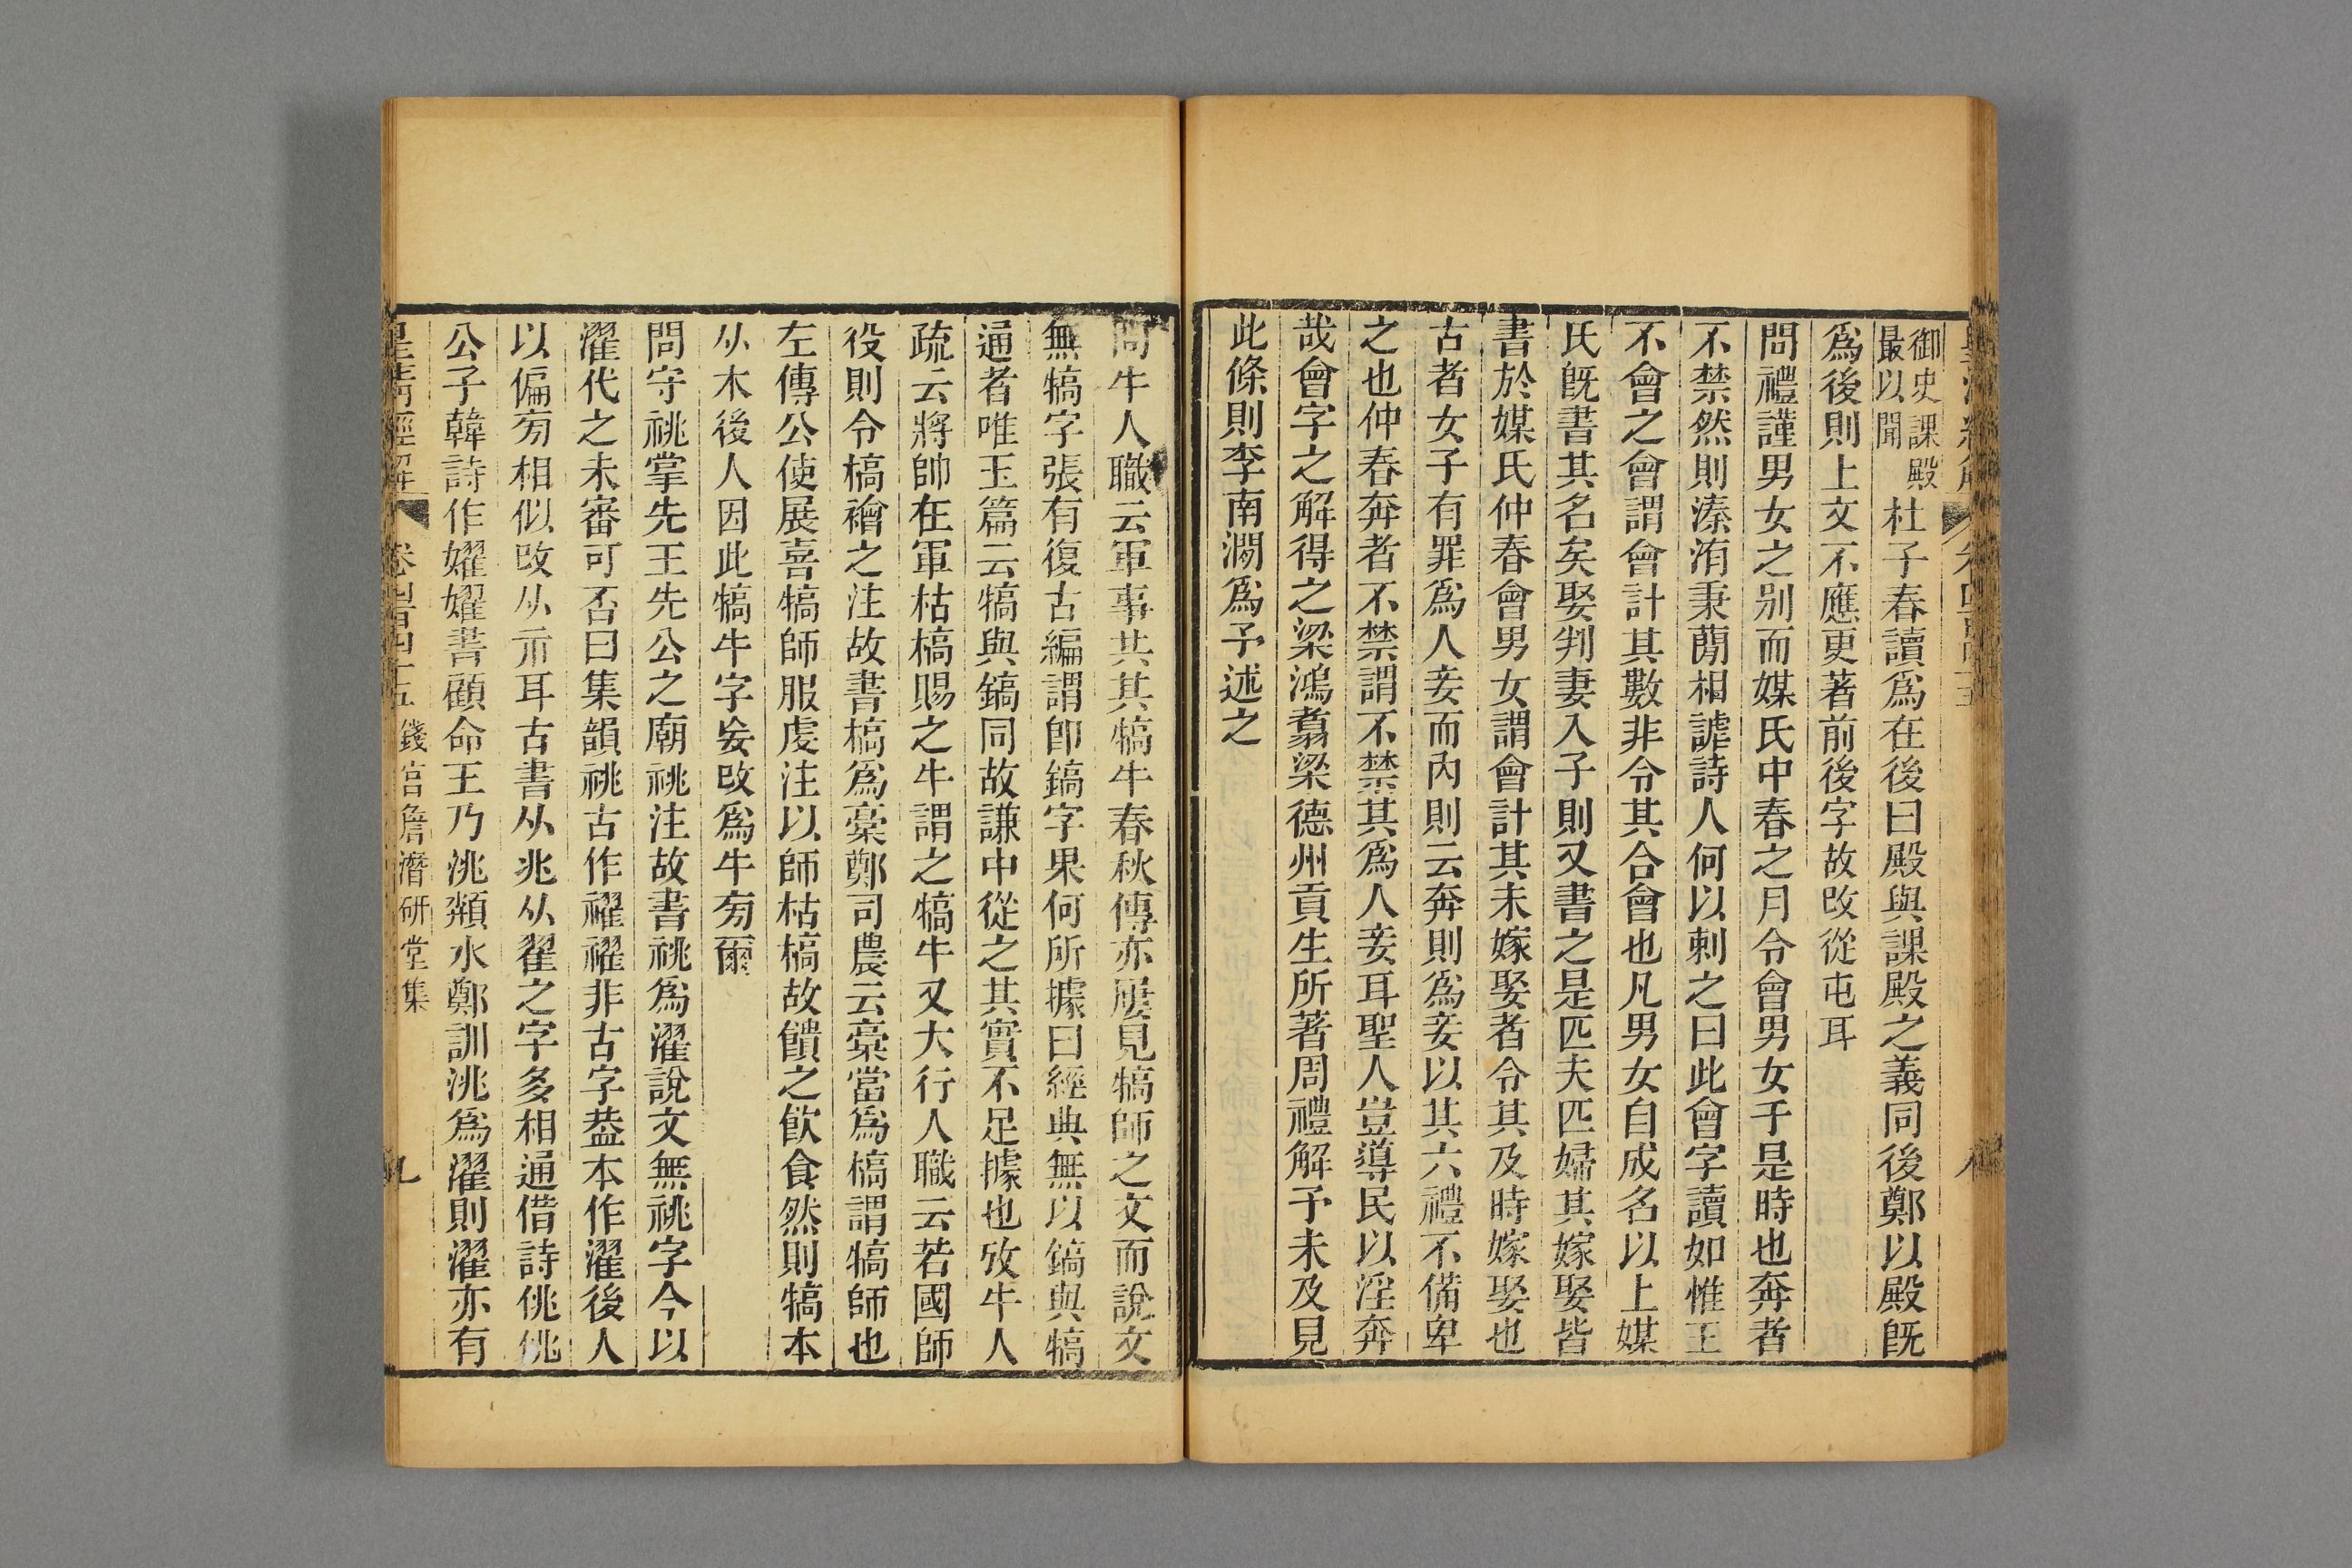 御史課殿最以聞杜子春讀爲在後曰殿與課殿之義同後鄭以殿旣
爲後則上文不應更著前後字故改從屯耳
問禮謹男女之別而媒氏中春之月令會男女于是時也奔者
不禁然則溱洧秉蕑相謔詩人何以刺之曰此會字讀如惟王
不會之會謂會計其數非令其合會也凡男女自成名以上媒
氏旣書其名矣娶判妻入子則又書之是匹夫匹婦其嫁娶皆
書於媒氏仲春會男女謂會計其未嫁娶者令其及時嫁娶也
古者女子有罪爲人妾而內則云奔則爲妾以其六禮不備卑
之也仲春奔者不禁謂不禁其爲人妾耳聖人豈導民以淫奔
哉會字之解得之梁鴻翥梁德州貢生所著周禮解予未及見
此條則李南澗爲予述之
問牛人職云軍事共其犒牛春秋傳亦屢見犒師之文而說文
無犒字張有復古編謂卽鎬字果何所據曰經典無以鎬與犒
通者唯玉篇云犒與鎬同故謙中從之其實不足據也攷牛人
疏云將帥在軍枯槁賜之牛謂之犒牛又大行人職云若國師
役則令槁禬之注故書槁爲稾鄭司農云稾當爲槁謂犒師也
左傳公使展喜犒師服虔注以師枯槁故饋之飮食然則犒本
从木後人因此犒牛字妄改爲牛旁爾
問守祧掌先王先公之廟祧注故書祧爲濯說文無祧字今以
濯代之未審可否曰集韻祧古作禷禷非古字葢本作濯後人
以偏旁相似改从示耳古書从兆从翟之字多相通借詩佻佻
公子韓詩作嬥嬥書顧命王乃洮頮水鄭訓洮爲濯則濯亦有
皇淸經解 卷四百四十五 錢宮詹潛硏堂集 九